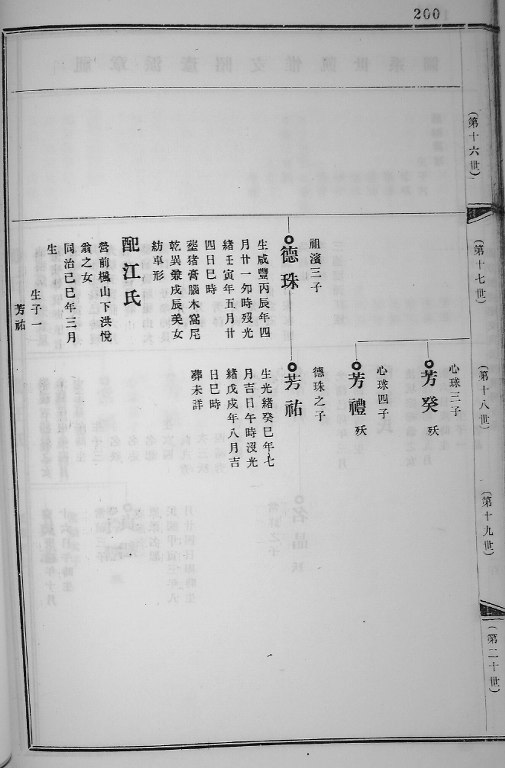 200
(第十六世)
(第十七世)
(第十八世)
(第十九世)
(第二十世)
心球三子
芳癸 殀
心球四子
芳禮 殀
祖濱三子
德珠
生咸豐丙辰年四
月廿一卯時沒光
緒壬寅年五月廿
四日巳時
塟猪膏腦木窩尾
乾巽兼戌辰美女
紡車形
配江氏
營前楓山下洪悅
翁之女
同治己巳年三月
生
生子一
芳祐
德珠之子
芳祐
生光緒癸巳年七
月吉日午時沒光
緒戊戌年八月吉
日巳時
葬未詳